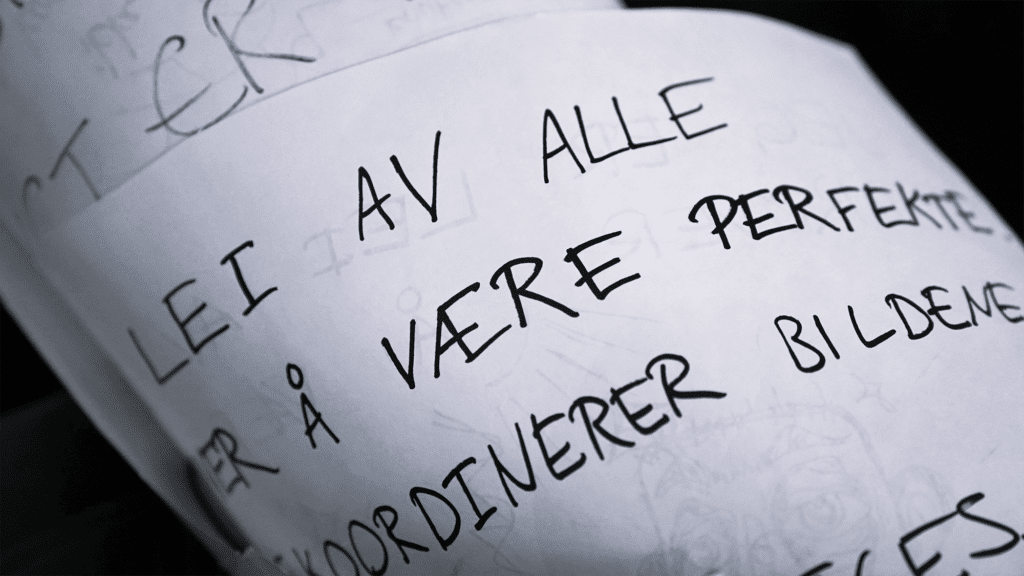 LEI AV ALLE
ER Å VÆRE PERFEKTE.
KOORDINERER BILDENE